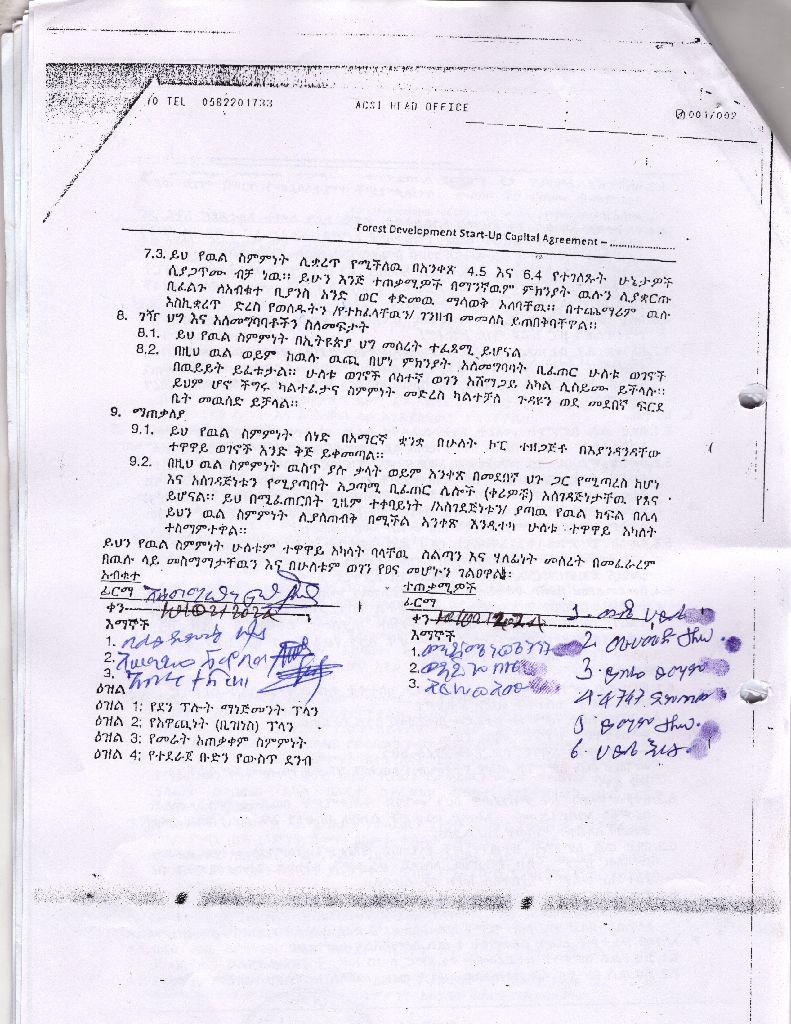 /0 TEL 0582201733 ACSI HEAD OFFICE 001/002
Forest Development Start-Up Capital Agreement – ......................
7.3. ይህ የዉል ስምምነት ሊቋረጥ የሚችለዉ በአንቀጽ 4.5 እና 6.4 የተገለጹት ሁኔታዎች
ሲያጋጥሙ ብቻ ነዉ። ይሁን እንጅ ተጠቃሚዎች በማንኛዉም ምክንያት ዉሉን ሊያቋርጡ
ቢፈልጉ ለአብቁተ ቢያንስ አንድ ወር ቀድመዉ ማሳወቅ አለባቸዉ። በተጨማሪም ዉሉ
እስኪቋረጥ ድረስ የወሰዱትን /የተከፈላቸዉን/ ገንዘብ መመለስ ይጠበቅባቸዋል።
8. ገዥ ህግ እና አለመግባባቶችን ስለመፍታት
8.1. ይህ የዉል ስምምነት በኢትዮጵያ ህግ መሰረት ተፈጻሚ ይሆናል
8.2. በዚህ ዉል ወይም ከዉሉ ዉጪ በሆነ ምክንያት አለመግባባት ቢፈጠር ሁለቱ ወገኖች
በዉይይት ይፈቱታል። ሁለቱ ወገኖች ሶስተኛ ወገን አሸማጋይ አካል ሊሰይሙ ይችላሉ።
ይህም ሆኖ ችግሩ ካልተፈታና ስምምነት መድረስ ካልተቻለ ጉዳዩን ወደ መደበኛ ፍርድ
ቤት መዉሰድ ይቻላል።
9. ማጠቃለያ
9.1. ይህ የዉል ስምምነት ሰነድ በአማርኛ ቋንቋ በሁለት ኮፒ ተዘጋጅቶ በእያንዳንዳቸው
ተዋዋይ ወገኖች አንድ ቅጅ ይቀመጣል።
9.2. በዚህ ዉል ስምምነት ዉስጥ ያሉ ቃላት ወይም አንቀጽ በመደበኛ ህጉ ጋር የሚጣረስ ከሆነ
እና አስገዳጅነቱን የሚያጣበት አጋጣሚ ቢፈጠር ሌሎች (ቀሪዎቹ) አስገዳጅነታቸዉ የፀና
ይሆናል። ይህ በሚፈጠርበት ጊዜም ተቀባይነት /አስገደጅነቱን/ ያጣዉ የዉል ክፍል በሌላ
ይህን ዉል ስምምነት ሊያስጠብቅ በሚችል አንቀጽ እንዲተካ ሁለቱ ተዋዋይ አካላት
ተስማምተዋል።
ይህን የዉል ስምምነት ሁለቱም ተዋዋይ አካላት ባላቸዉ ስልጣን እና ሃላፊነት መሰረት በመፈራረም
በዉሉ ላይ መስማማታቸዉን እና በሁለቱም ወገን የፀና መሆኑን ገልፀዋል።
አብቁተ
ፊርማ
ቀን
እማኞች
1.
2.
3.
ተጠቃሚዎች
ፊርማ
ቀን
እማኞች
1.
2.
3.
1.
2
3.
4
5
6.
ዕዝል
ዕዝል 1: የደን ፕሎት ማኔጅመንት ፕላን
ዕዝል 2: የአዋጪነት (ቢዝነስ) ፕላን
ዕዝል 3: የመሬት አጠቃቀም ስምምነት
ዕዝል 4: የተደራጀ ቡድን የውስጥ ደንብ